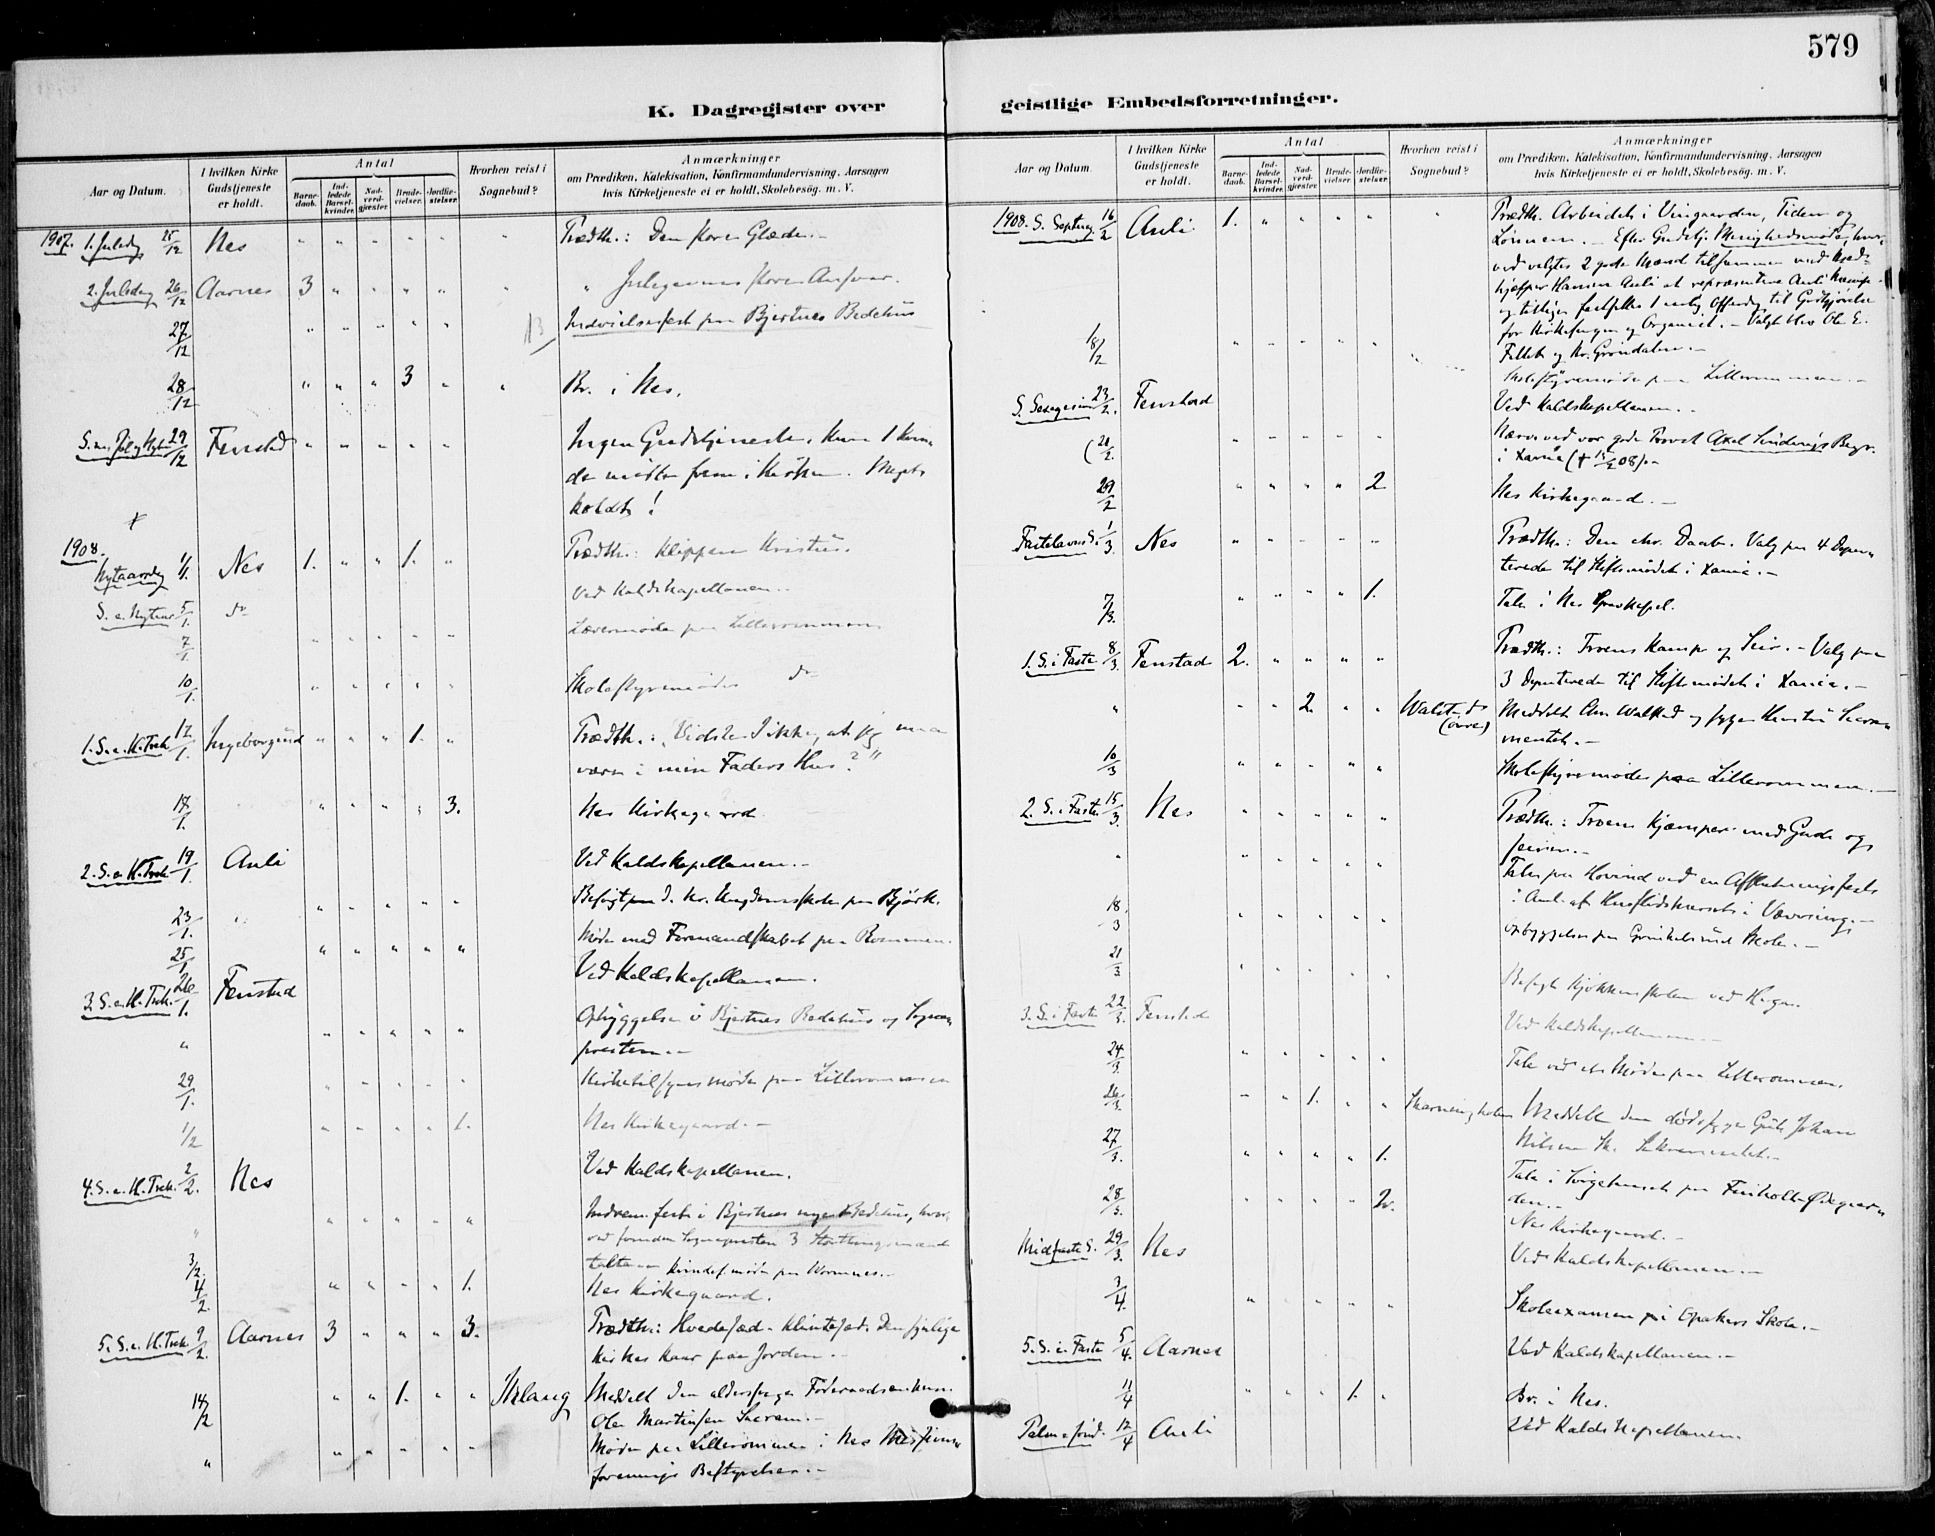 579
K. Dagregister over
Aar og Datum.
I hvilken Kirke Gudstjeneste er holdt.
Antal
Barnedaab.
Indledede Barselkvinder.
Nadverdgjæster.
Brudevielser.
Jordfæstelser.
Hvorhen reist i Sognebud?
Anmærkninger
om Prædiken, Katekisation, Konfirmandundervisning, Aarsagen
hvis Kirketjeneste ei er holdt, Skolebesög. m. V.
1907. 1. Juledag 25/12 Nes " " " " " " Prædtk.: Den store Glæde. -
2. Juledag 26/12 Aarnes 3 " " " " " " Julegavens store Ansvar.
27/12 " " " " " Indvielsesfest paa Bjertnes Bedehus
28/12 " " " 3 " " Br. i Nes.
S. m. Jul og Nytaar 29/12 Fenstad " " " " " Ingen Gudstjeneste. Kun 1 Kvin-
de mödte frem i Kirken. Meget
koldt!
1908.
Nytaarsdag 1/1. Nes 1. " " 1. " Prædtk.: Klippen Kristus.
S. e. Nytaar 5/1. do Ved Kaldskapellanen. -
7/1. " " " " " Læremöde paa Lillerommen
10/1. " " " " " Skolestyremöde do
1. S. e. H. Trek. 12/1. Ingeborgrud " " " 1. " Prædtk.: "Vidste I ikke, at jeg maa
være i min Faders Hus?"
18/1. " " " " 3. Nes Kirkegaard.
2. S. e. H. Trek. 19/1. Auli Ved Kaldskapellanen. -
23/1. " " " " " Besögt paa d. kr. Ungdomsskole paa Björk.
25/1 " " " " " Möde med Formandskabet paa Rommen.
3. S. e. H. Trek. 26/1. Fenstad Ved Kaldskapellanen.
" " " " " " Opbyggelse i Bjertnes Bedehus og Sogne-
presten. -
29/1. " " " " " Kirketilsynsmöde paa Lillerommen
1/2 " " " " 1. Nes Kirkegaard. -
4. S. e. H. Trek. 2/2. Nes Ved Kaldskapellanen.
" " " " " " Indrem. fest i Bjertnes nye Bedehus, hvor-
ved foruden Sognepresten 3 Stortingsmænd
talte
3/2. Kvindef. möde paa Wormnes. -
4/2. " " " " 1. Nes Kirkegaard.
5. S. e. H. Trek. 9/2. Aarnes 3 " " " 3. Prædtk.: Hvedesæd - Klintesæd. Den synlige
Kirkes Kaar paa Jorden. -
14/2 " " 1. " " Sklang Meddelt den alderssvage
Ole Martinsen Sacram. -
" " " " " " Möde paa Lillerommen i Nes Missions-
forenings Bestyrelse. -
geistlige Embedsforretninger.
Aar og Datum.
I hvilken Kirke Gudstjeneste er holdt.
Antal
Barnedaab.
Indledede Barselkvinder.
Nadverdgjæster.
Brudevielser.
Jordfæstelser.
Hvorhen reist i Sognebud?
Anmærkninger
om Prædiken, Katekisation, Konfirmandundervisning, Aarsagen
hvis Kirketjeneste ei er holdt, Skolebesög. m. V.
1908. S. Septuag. 16/2 Auli 1. " " " " " Prædtk. Arbeidet i Vingaarden, Tiden og
Lönnen. - Efter Gudstj. Menighedsmöde, hvor-
ved valgtes 2 gode Mænd tilsammen med Med-
hjælper Hansen Auli at repræsentere Auli
og tillige fastsattes 1 aarlig Offerdag til Godtgjörelse
for Kirkesangen og Organist. - Valgt blev Ole E.
Fillet og Kr. Gröndalen. -
18/2 " " " " " Skolestyremöde paa Lillerommen. -
S. Sexagesima 23/2. Fenstad Ved Kaldskapellanen. -
(21/2. " " " " " Nærv. ved vor gode Provst Axel Sindings Begr.
i Xania († 15/2 08). -
29/2 " " " " 2 Nes Kirkegaard. -
Fastelavns S. 1/3. Nes " " " " " Prædtk.: Den chr. Daab. Valg paa 4 Depu-
terede til Stiftsmödet i Xania. -
7/3. " " " " 1. Tale i Nes Gravkapel.
1. S. i Faste 8/3. Fenstad 2. " " " " Prædtk.: Troens Kamp og Seir. - Valg paa
3 Deputerede til Stiftsmödet i Xania. -
" " " 2. " " Walstad (övre) Meddelt Chr. Walstad og syge Hustru Sacra-
mentet. -
10/3 " " " " " Skolestyremöde paa Lillerommen. -
2. S. i Faste 15/3. Nes " " " " " Prædtk.: Troens Kjæmper med Gud og
seirer. -
" " " " " " Tale paa Hovind ved en Afslutningsfest
i Anl. af Husflidskurset i Vævning. -
18/3 " " " " " Opbyggelse paa Grinkelsrud Skole. -
21/3 " " " " " Besögt Kjökkenskolen ved Haga.
3. S. i Faste 22/3. Fenstad Ved Kaldskapellanen. -
24/3. " " " " " Tale ved et Möde paa Lillerommen.
26/3. " " 1. " " Meddelt den dödssyge Johan
Nilsen Sk. Sakramentet. -
27/3. " " " " 1. Tale i Sörgehuset paa
den. -
28/3. " " " " 2. Nes Kirkegaard. -
Midfaste S. 29/3. Nes Ved Kaldskapellanen. -
3/4. " " " " " Skoleexamen paa Opakers Skole. -
5. S. i Faste 5/4. Aarnes Ved Kaldskapellanen. -
11/4 " " " 1. " Br. i Nes.
Palmesönd. 12/4 Auli Ved Kaldskapellanen.